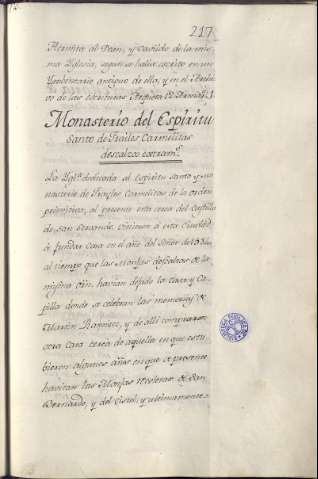 217
al Dean, y Cavildo de la mis-
ma Yglesia, segun se halla escrito en un
antiguo de ella, y en el Archi-
vo de las escrituras
Monasterio del Espiritu
Santo de Frailes Carmelitas
descalzos extram.s
La Ygl.a dedicada al Espiritu Santo y mo-
nasterio de Frayles Carmelitas de la orden
primitiva, al presente está cerca del Castillo
de San Servando, vinieron à esta Ciudad
à fundar Casa en el año del Señor de
al tiempo que las Monjas descalzas de la
misma orn. havian dejado la Casa y Ca-
pilla donde se celebran las memorias de
Martin Ramirez, y de alli compraron
otra Casa cerca de aquella en que estu-
bieron algunos años en que à presente
havitan las Monjas Recoletas de San
Bernardo, y del Cistel; y ultimamente